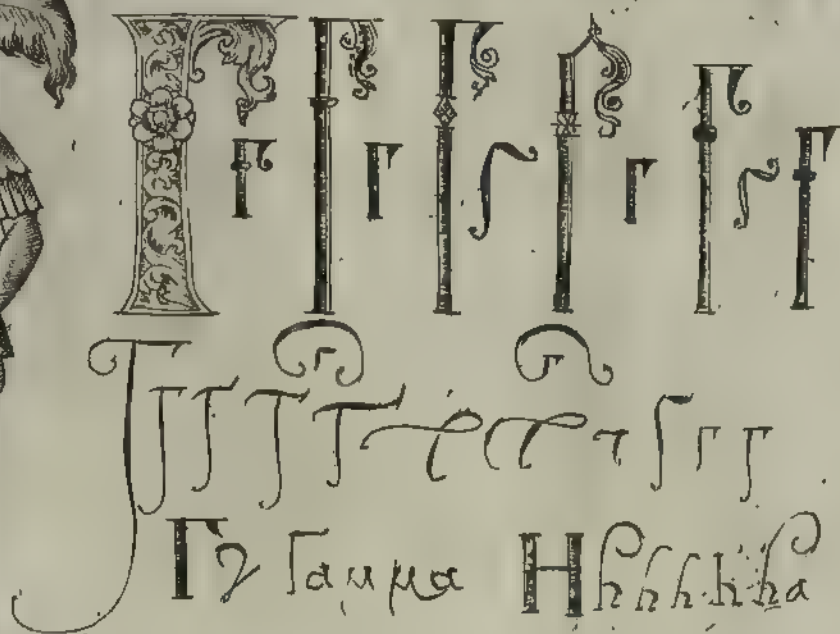 Г Г Г Г Г Г
г г г г г
г г
Г г г г г г г г г г г
Γ γ Γαμμα H h h h h ha